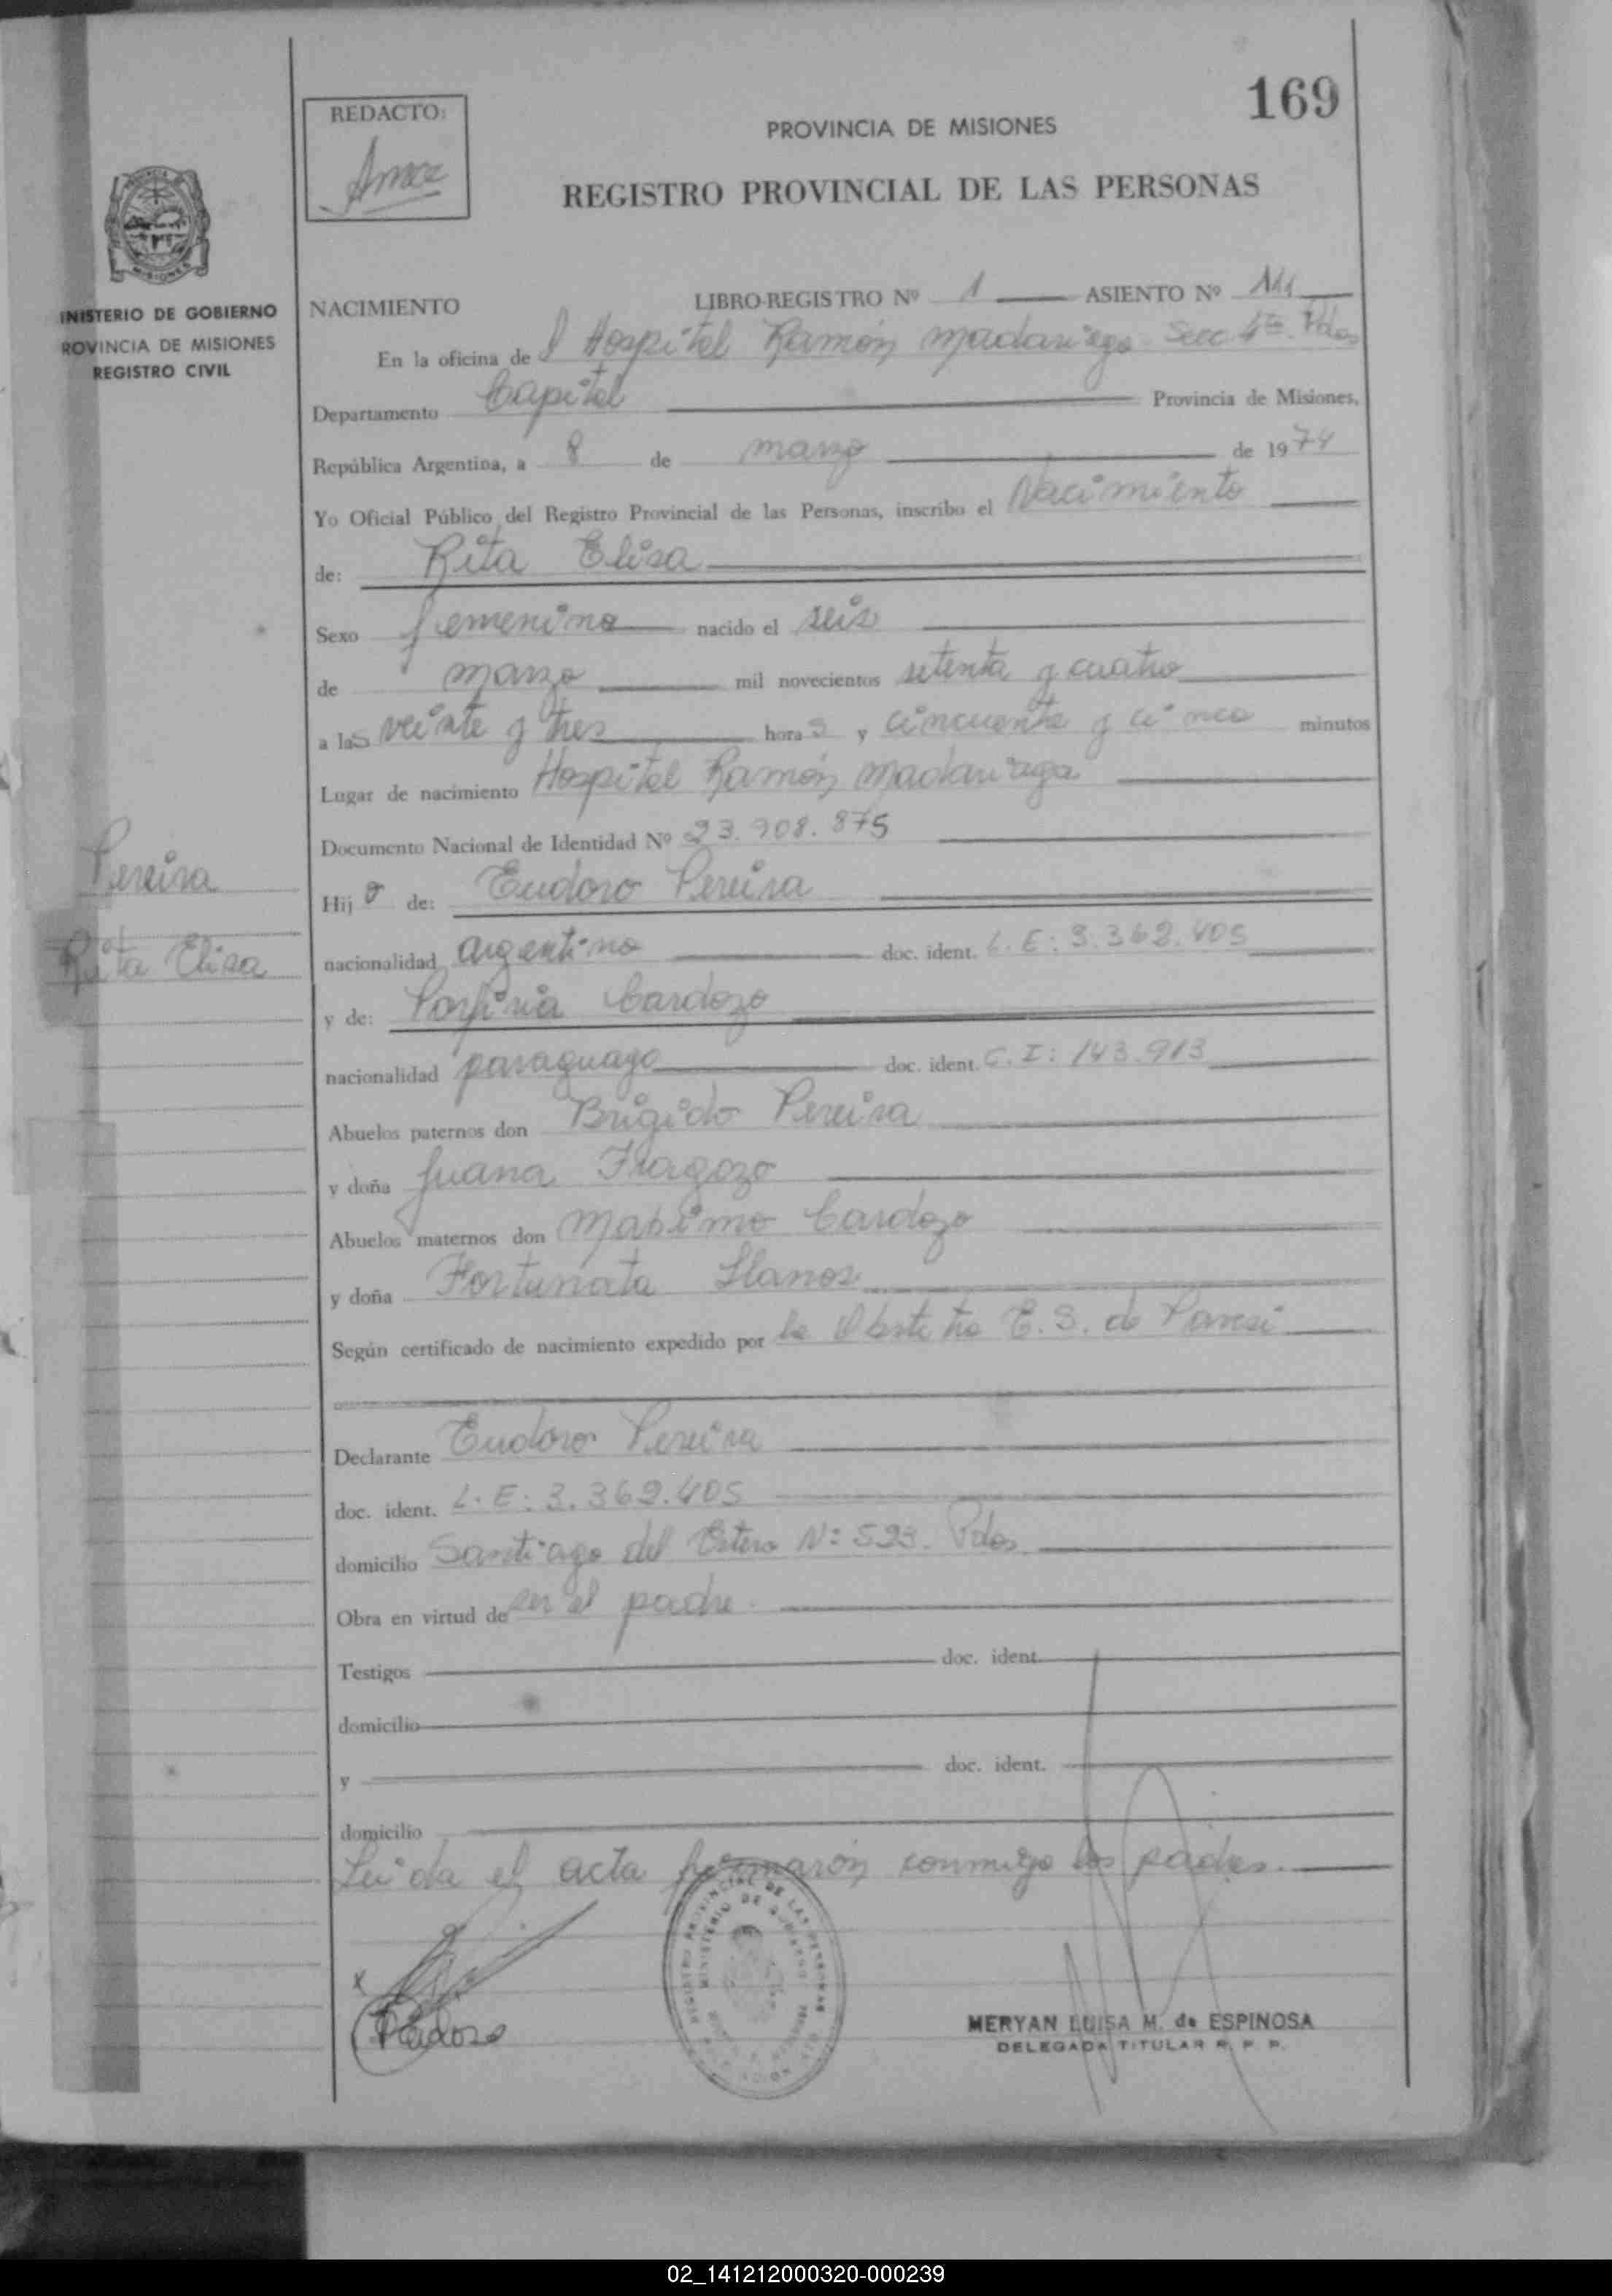 169
REDACTO:
PROVINCIA DE MISIONES
REGISTRO PROVINCIAL DE LAS PERSONAS
INISTERIO DE GOBIERNO
ROVINCIA DE MISIONES
REGISTRO CIVIL
NACIMIENTO LIBRO-REGISTRO Nº 1 ASIENTO Nº 111
En la oficina de l Hospital Ramón Madariaga Secc 4ta. Pdas
Departamento Capital Provincia de Misiones,
República Argentina, a 8 de marzo de 1974
Yo Oficial Público del Registro Provincial de las Personas, inscribo el Nacimiento
de: Rita Elisa
Sexo femenino nacido el seis
de marzo mil novecientos setenta y cuatro
a las veinte y tres horas y cincuenta y cinco minutos
Lugar de nacimiento Hospital Ramón Madariaga
Documento Nacional de Identidad Nº 23.908.875
Pereira
Hij a de: Eudoro Pereira
Rita Elisa
nacionalidad argentino doc. ident. L.E: 3.362.405
y de: Porfiria Cardozo
nacionalidad paraguaya doc. ident. C.I: 143.913
Abuelos paternos don Brigido Pereira
y doña Juana Fragozo
Abuelos maternos don Masimo Cardozo
y doña Fortunata Llanos
Según certificado de nacimiento expedido por la Obstetra E.S. de
Declarante Eudoro Pereira
doc. ident. L.E: 3.362.405
domicilio Santiago del Estero Nº: 593. Pdas
Obra en virtud de ser el padre.
Testigos doc. ident.
domicilio
y doc. ident.
domicilio
Leida el acta firmarón conmigo los padres.
REGISTRO PROVINCIAL DE LAS PERSONAS
MINISTERIO DE GOBIERNO
MERYAN LUISA M. de ESPINOSA
DELEGADA TITULAR R. P. P.
02_141212000320-000239